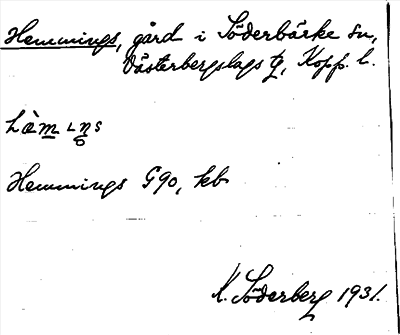 Hemmings, gård i Söderbärke sn,
Västerbergslags tg, Kopp. l.
Hemmings G90, kb
K. Söderberg 1931.